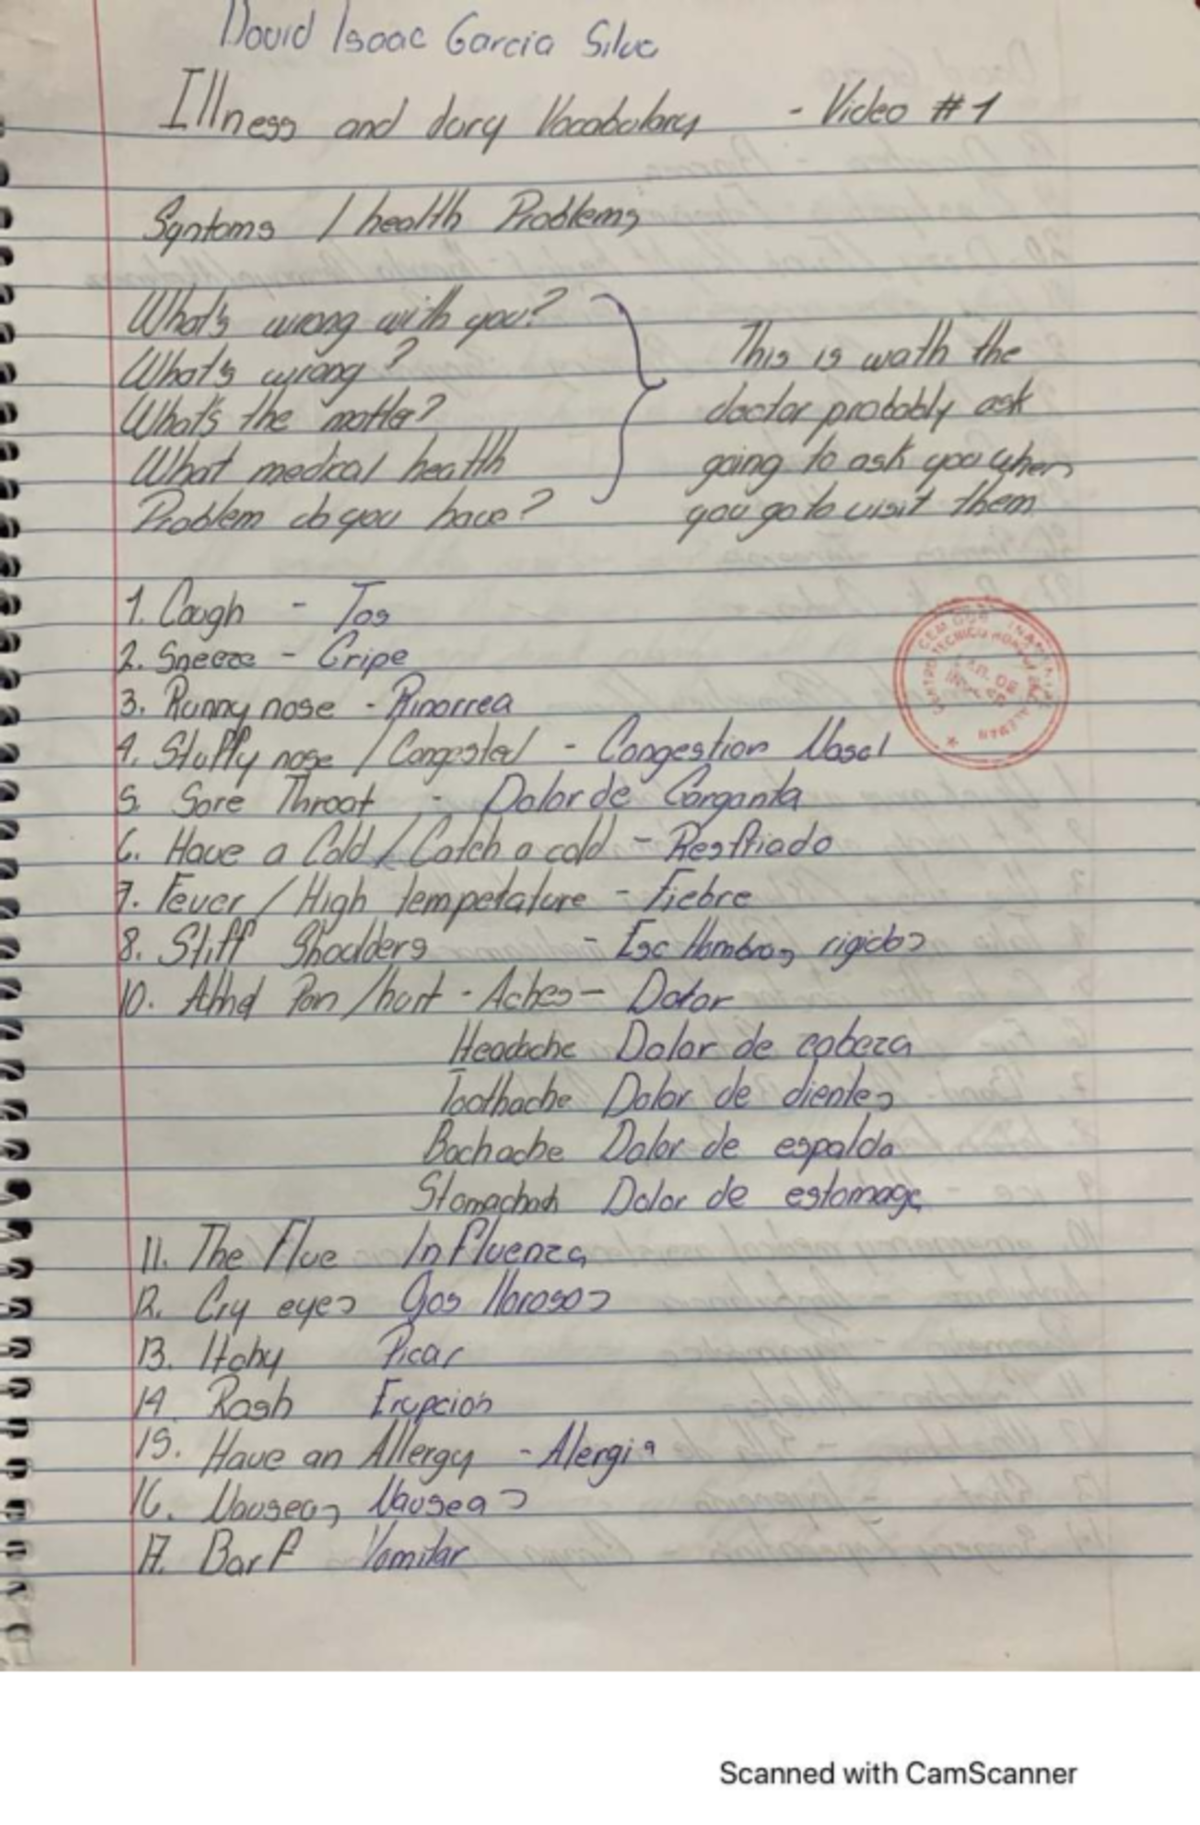 David Isaac Garcia Silva
Illness and dory Vocabulary - Video #1
Syntoms / health Problems
What's wrong with you?
What's wrong?
What's the matter?
What medical health
Problem do you have?
This is wath the
doctor probably ask
going to ask you when
you go to visit them
1. Cough - Tos
2. Sneeze - Gripe
3. Runny nose - Rinorrea
4. Stuffy nose / Congested - Congestion Nasal
5. Sore Throat - Dolor de Garganta
6. Have a Cold / Catch a cold - Resfriado
7. Fever / High tempetature - Fiebre
8. Stiff Shoulders - Esc Hombros rigidos
10. Pain / hurt - Aches - Dolor
Headache Dolor de cabeza
Toothache Dolor de dientes
Bachache Dolor de espalda
Stomachach Dolor de estomago
11. The Flue Influenza
12. Cry eyes Ojos llorosos
13. Itchy Picar
14. Rash Erupción
15. Have an Allergy - Alergia
16. Nauseas Nauseas
17. Barf Vomitar
Scanned with CamScanner